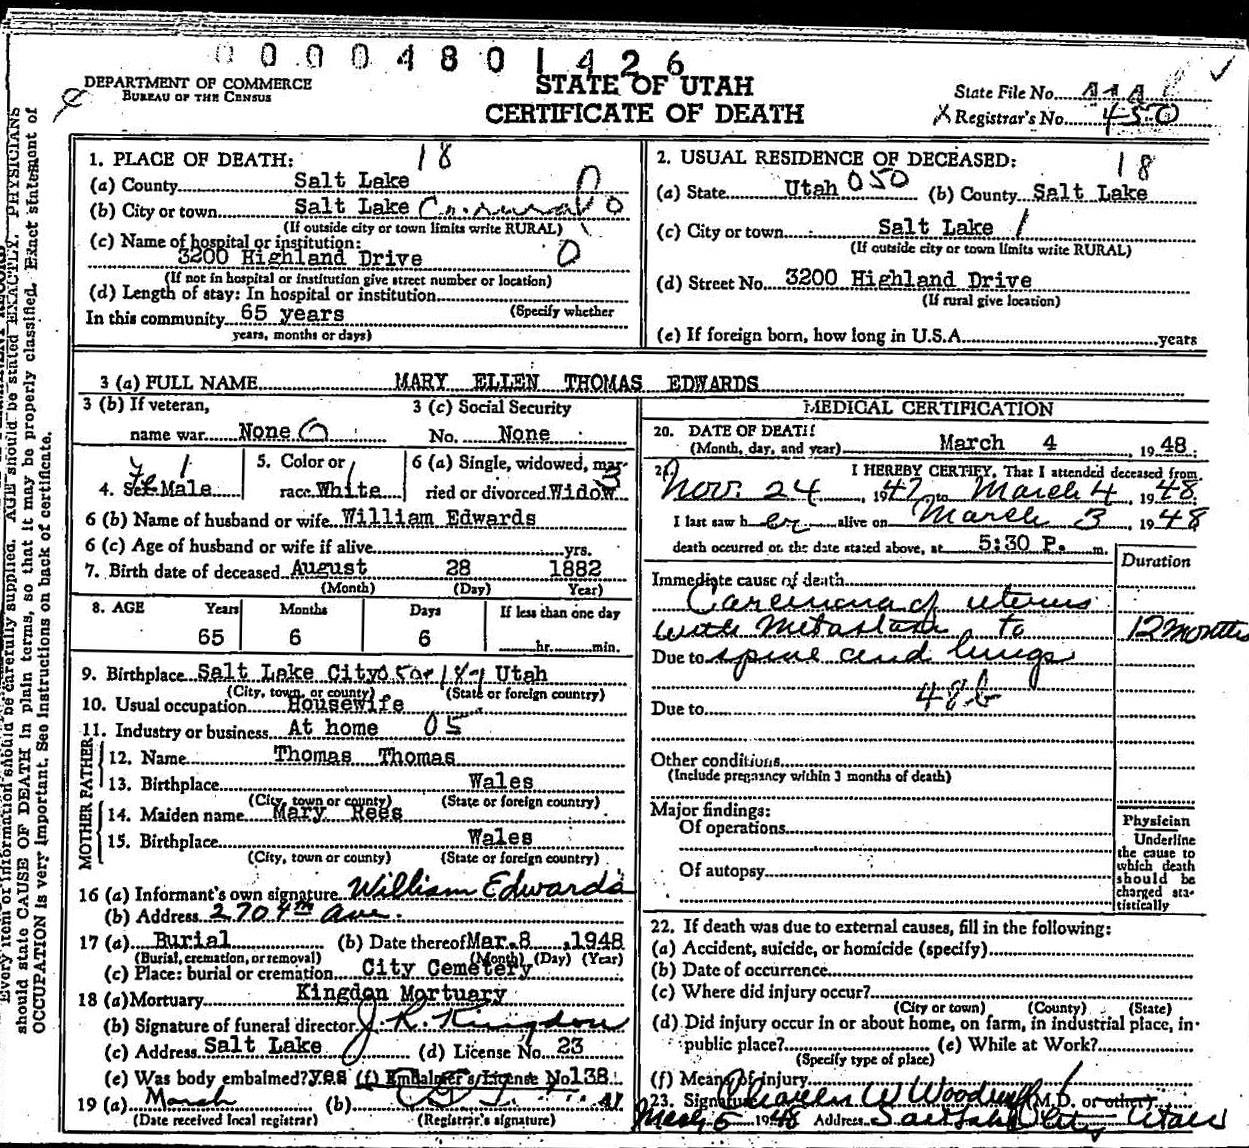 0 0 0 0 4 8 0 1 4 2 6
DEPARTMENT OF COMMERCE
BUREAU OF THE CENSUS
STATE OF UTAH
CERTIFICATE OF DEATH
State File No.
X Registrar's No. 450
1. PLACE OF DEATH: 18
(a) County Salt Lake
(b) City or town Salt Lake Co. rural 0
(If outside city or town limits write RURAL)
(c) Name of hospital or institution:
3200 Highland Drive 0
(If not in hospital or institution give street number or location)
(d) Length of stay: In hospital or institution
(Specify whether
In this community 65 years
years, months or days)
2. USUAL RESIDENCE OF DECEASED: 18
(a) State Utah 050 (b) County Salt Lake
(c) City or town Salt Lake 1
(If outside city or town limits write RURAL)
(d) Street No. 3200 Highland Drive
(If rural give location)
(e) If foreign born, how long in U.S.A. years
3 (a) FULL NAME MARY ELLEN THOMAS EDWARDS
3 (b) If veteran,
name war None
3 (c) Social Security
No. None
4. Sex Fe Male 1
5. Color or
race White 1
6 (a) Single, widowed, mar-
ried or divorced Widow 3
6 (b) Name of husband or wife William Edwards
6 (c) Age of husband or wife if alive yrs.
7. Birth date of deceased August 28 1882
(Month) (Day) Year)
8. AGE Years Months Days If less than one day
65 6 6 hr. min.
9. Birthplace Salt Lake City Utah
(City, town, or county) (State or foreign country)
10. Usual occupation Housewife
11. Industry or business At home 05
FATHER
12. Name Thomas Thomas
13. Birthplace Wales
(City, town or county) (State or foreign country)
MOTHER
14. Maiden name Mary Rees
15. Birthplace Wales
(City, town or county) (State or foreign country)
16 (a) Informant's own signature William Edwards
(b) Address 270 4th Ave.
17 (a) Burial (b) Date thereof Mar. 8 , 1948
(Burial, cremation, or removal) (Month) (Day) (Year)
(c) Place: burial or cremation City Cemetery
18 (a) Mortuary Kingdon Mortuary
(b) Signature of funeral director J. R. Kingdon
(c) Address Salt Lake (d) License No. 23
(e) Was body embalmed? yes (f) Embalmer's License No 138
19 (a) March (b)
(Date received local registrar) (Registrar's signature)
MEDICAL CERTIFICATION
20. DATE OF DEATH
(Month, day, and year) March 4 , 19 48 .
21. I HEREBY CERTIFY, That I attended deceased from
Nov. 24 , 1947 to March 4 , 19 48.
I last saw h er alive on March 3 , 19 48
death occurred on the date stated above, at 5:30 P. m.
Duration
Immediate cause of death
Carcinoma of uterus
with Metastasis to 12 months
Due to spine and lungs
48b
Due to
Other conditions
(Include pregnancy within 3 months of death)
Major findings:
Of operations
Of autopsy
Physician
Underline
the cause to
which death
should be
charged sta-
tistically
22. If death was due to external causes, fill in the following:
(a) Accident, suicide, or homicide (specify)
(b) Date of occurrence
(c) Where did injury occur?
(City or town) (County) (State)
(d) Did injury occur in or about home, on farm, in industrial place, in
public place? (e) While at Work?
(Specify type of place)
(f) Means of injury
23. Signature Charles W Woodruff M.D. or other)
March 5 1948 Address Salt Lake City Utah
Every item of information should be carefully supplied. AGE should be stated EXACTLY. PHYSICIANS
should state CAUSE OF DEATH in plain terms, so that it may be properly classified. Exact statement of
OCCUPATION is very important. See instructions on back of certificate.